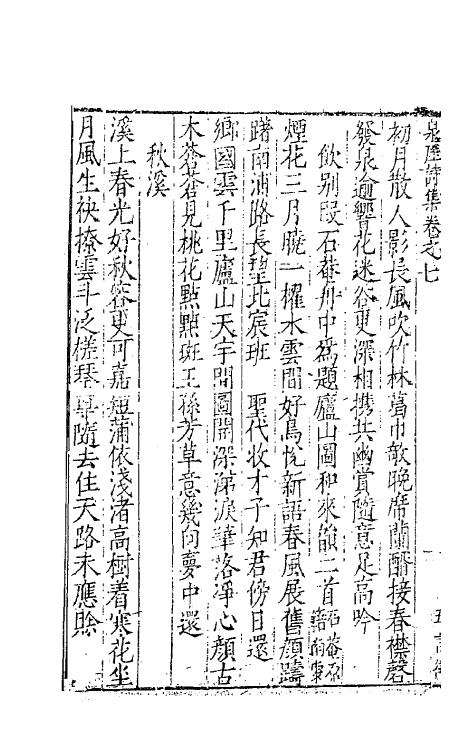 泉厓詩集卷之七
五言律
初月散人影長風吹竹林葛巾欹晚席蘭醑接春襟磬
發泉逾響花迷谷更深相携共幽賞隨意足高吟
飲别段石菴舟中為題廬山圖和來韻二首
煙花三月曉一櫂水雲間好鳥悅新語春風展舊顏躊
躇南浦路長望北宸班 聖代收才子知君傍日還
鄉國雲千里廬山天宇間圖開深涕淚筆落淨心顏古
木蒼蒼見桃花點點斑王孫芳草意幾向夢中還
秋溪
溪上春光好秋容更可嘉短蒲依淺渚高樹着寒花坐
月風生袂撩雲斗泛槎琴尊隨去住天路未應賖